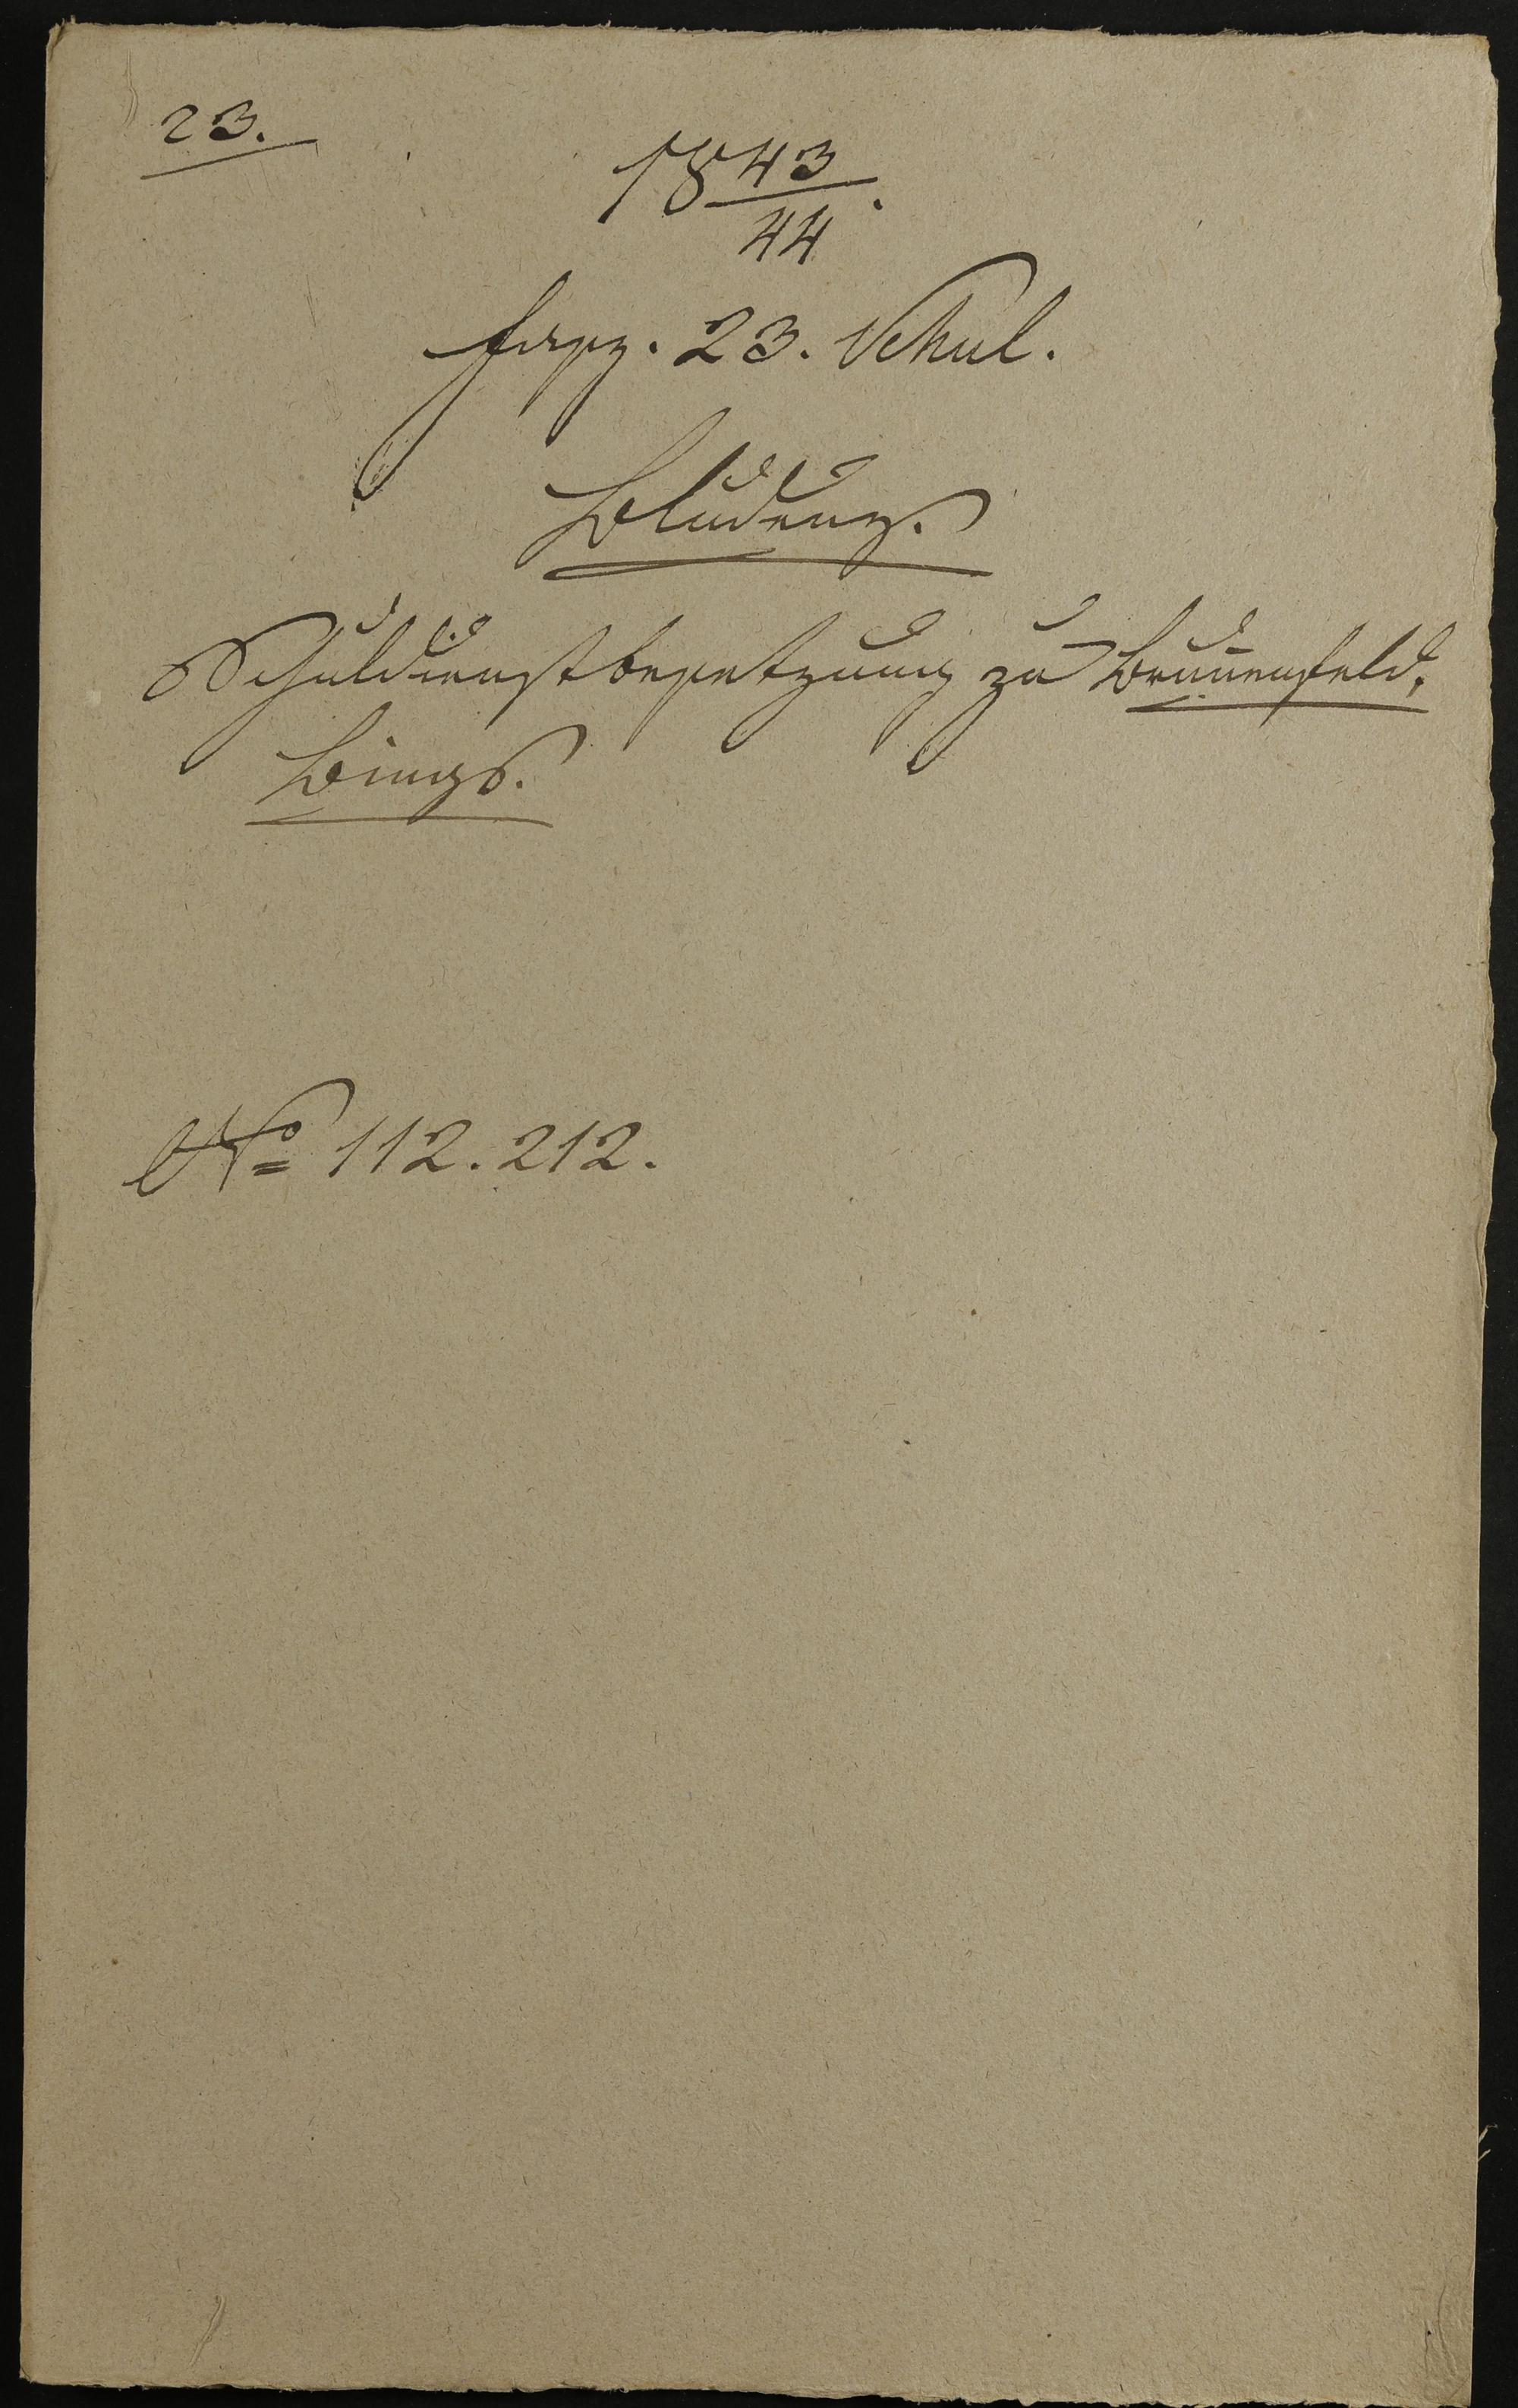 23.
1843/44.
fasz. 23. Schul.
Bludenz.
Schuldienstbesetzung zu Brunnenfeld,
Bings.
No 112. 212.